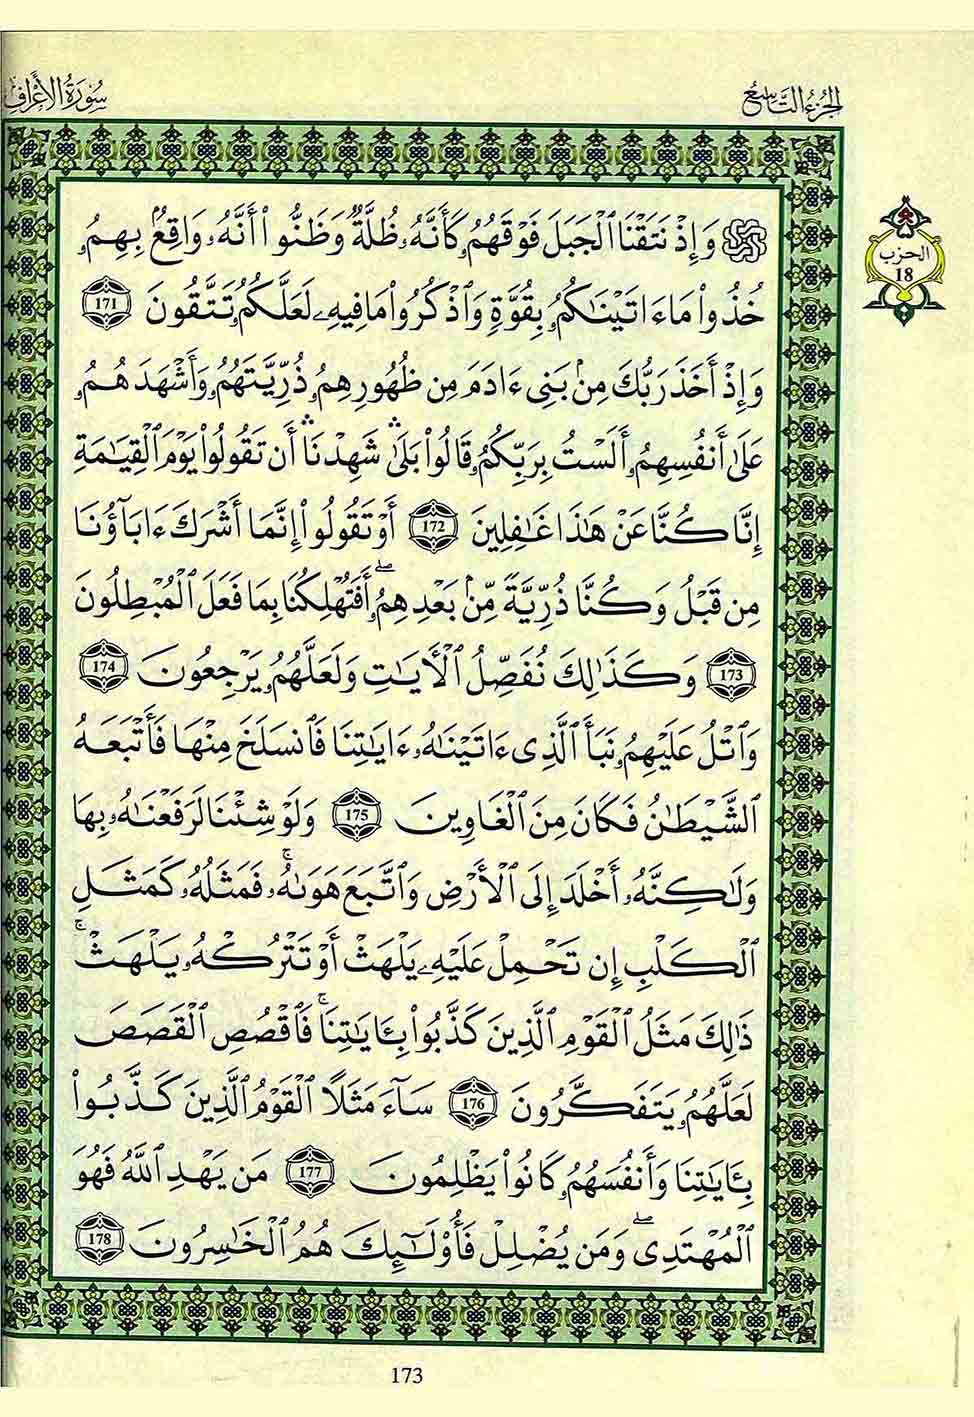 الجزء التاسع
سورة الأعراف
الحزب
18
۞ وَإِذْ نَتَقْنَا ٱلْجَبَلَ فَوْقَهُمُۥ كَأَنَّهُۥ ظُلَّةٌ وَظَنُّوٓا۟ أَنَّهُۥ وَاقِعٌۢ بِهِمُۥ
خُذُوا۟ مَآ ءَاتَيْنَٰكُمُۥ بِقُوَّةٍ وَٱذْكُرُوا۟ مَا فِيهِۦ لَعَلَّكُمُۥ تَتَّقُونَ 171
وَإِذْ أَخَذَ رَبُّكَ مِنۢ بَنِىٓ ءَادَمَ مِن ظُهُورِهِمُۥ ذُرِّيَّتَهُمُۥ وَأَشْهَدَهُمُۥ
عَلَىٰٓ أَنفُسِهِمُۥٓ أَلَسْتُ بِرَبِّكُمُۥ قَالُوا۟ بَلَىٰ ۛ شَهِدْنَآ ۛ أَن تَقُولُوا۟ يَوْمَ ٱلْقِيَٰمَةِ
إِنَّا كُنَّا عَنْ هَٰذَا غَٰفِلِينَ 172 أَوْ تَقُولُوٓا۟ إِنَّمَآ أَشْرَكَ ءَابَآؤُنَا
مِن قَبْلُ وَكُنَّا ذُرِّيَّةً مِّنۢ بَعْدِهِمُۥٓ ۖ أَفَتُهْلِكُنَا بِمَا فَعَلَ ٱلْمُبْطِلُونَ
173 وَكَذَٰلِكَ نُفَصِّلُ ٱلْـَٔايَٰتِ وَلَعَلَّهُمُۥ يَرْجِعُونَ 174
وَٱتْلُ عَلَيْهِمُۥ نَبَأَ ٱلَّذِىٓ ءَاتَيْنَٰهُۥ ءَايَٰتِنَا فَٱنسَلَخَ مِنْهَا فَأَتْبَعَهُ
ٱلشَّيْطَٰنُ فَكَانَ مِنَ ٱلْغَاوِينَ 175 وَلَوْ شِئْنَا لَرَفَعْنَٰهُۥ بِهَا
وَلَٰكِنَّهُۥٓ أَخْلَدَ إِلَى ٱلْأَرْضِ وَٱتَّبَعَ هَوَىٰهُۥ ۚ فَمَثَلُهُۥ كَمَثَلِ
ٱلْكَلْبِ إِن تَحْمِلْ عَلَيْهِۦ يَلْهَثْ أَوْ تَتْرُكْهُۥ يَلْهَثْ ۚ
ذَٰلِكَ مَثَلُ ٱلْقَوْمِ ٱلَّذِينَ كَذَّبُوا۟ بِـَٔايَٰتِنَا ۚ فَٱقْصُصِ ٱلْقَصَصَ
لَعَلَّهُمُۥ يَتَفَكَّرُونَ 176 سَآءَ مَثَلًا ٱلْقَوْمُ ٱلَّذِينَ كَذَّبُوا۟
بِـَٔايَٰتِنَا وَأَنفُسَهُمُۥ كَانُوا۟ يَظْلِمُونَ 177 مَن يَهْدِ ٱللَّهُ فَهُوَ
ٱلْمُهْتَدِى ۖ وَمَن يُضْلِلْ فَأُو۟لَٰٓئِكَ هُمُ ٱلْخَٰسِرُونَ 178
173